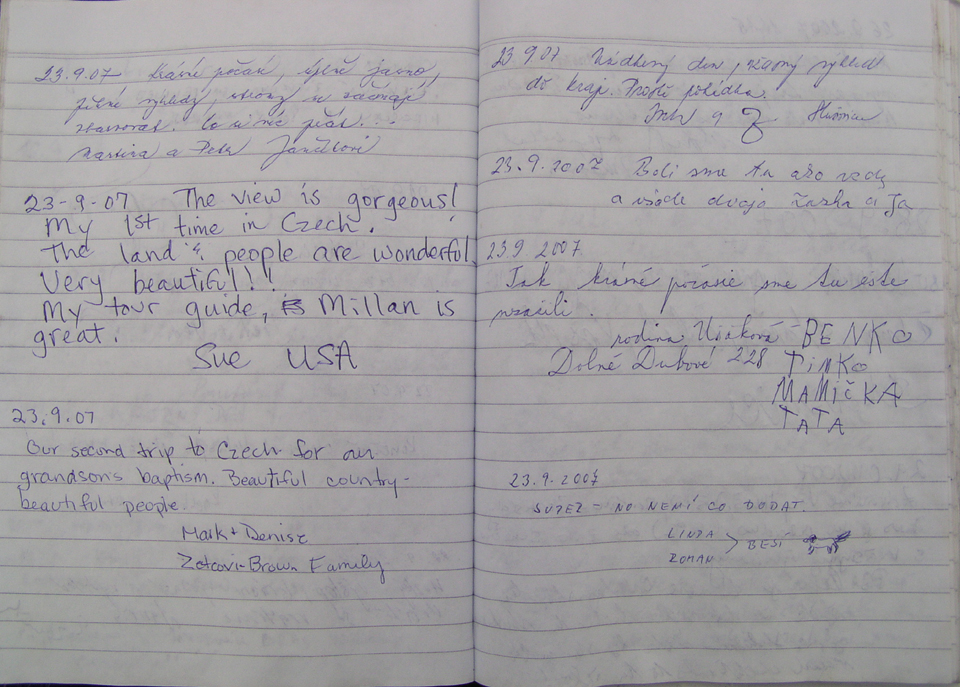 23.9.07 Krásné počasí, úplně jasno,
pěkné výhledy, stromy se začínají
zbarvovat. Co si víc přát.
Martina a Petr Jančíkovi
23-9-07 The view is gorgeous!
My 1st time in Czech.
The land & people are wonderful.
Very beautiful!!
My tour guide, Millan is
great.
Sue USA
23.9.07
Our second trip to Czech for our
grandson's baptism. Beautiful country-
beautiful people.
Mark + Denise
Brown Family
23.9.07 Nádherný den, krásný výhled
do kraje. Prostě pohádka.
23.9.2007 Boli sme tu ako vždy
a všade dvaja Ja
23.9 2007
Tak krásné počasie sme tu ešte
nezažili.
rodina BENKO
Dolné Dubové 228 TiNKo
MAMiČKA
TATA
23.9.2007
SUPER - NO NEMÍ CO DODAT.
LINDA
ROMAN > BESÍ